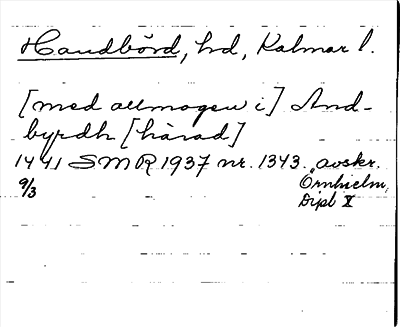 Handbörd, hd, Kalmar l.
[med allmogen i] And-
byrdh [härad]
1441 SMR 1937 nr. 1343. avskr.
9/3 Örnhielm,
Dipl X